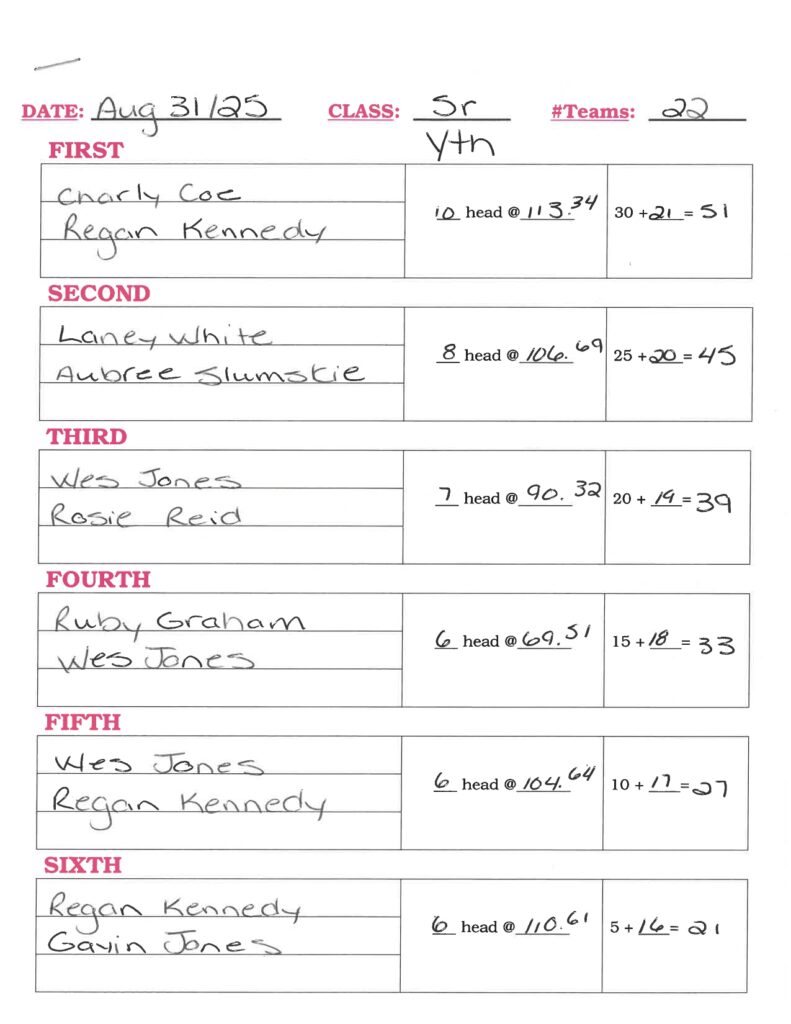 DATE: Aug 31/25 CLASS: Sr Yth #Teams: 22
FIRST
Charly Coe
Regan Kennedy
10 head @ 113.34
30 + 21 = 51
SECOND
Laney White
Aubree Slumskie
8 head @ 106.69
25 + 20 = 45
THIRD
Wes Jones
Rosie Reid
7 head @ 90.32
20 + 19 = 39
FOURTH
Ruby Graham
Wes Jones
6 head @ 69.51
15 + 18 = 33
FIFTH
Wes Jones
Regan Kennedy
6 head @ 104.64
10 + 17 = 27
SIXTH
Regan Kennedy
Gavin Jones
6 head @ 110.61
5 + 16 = 21